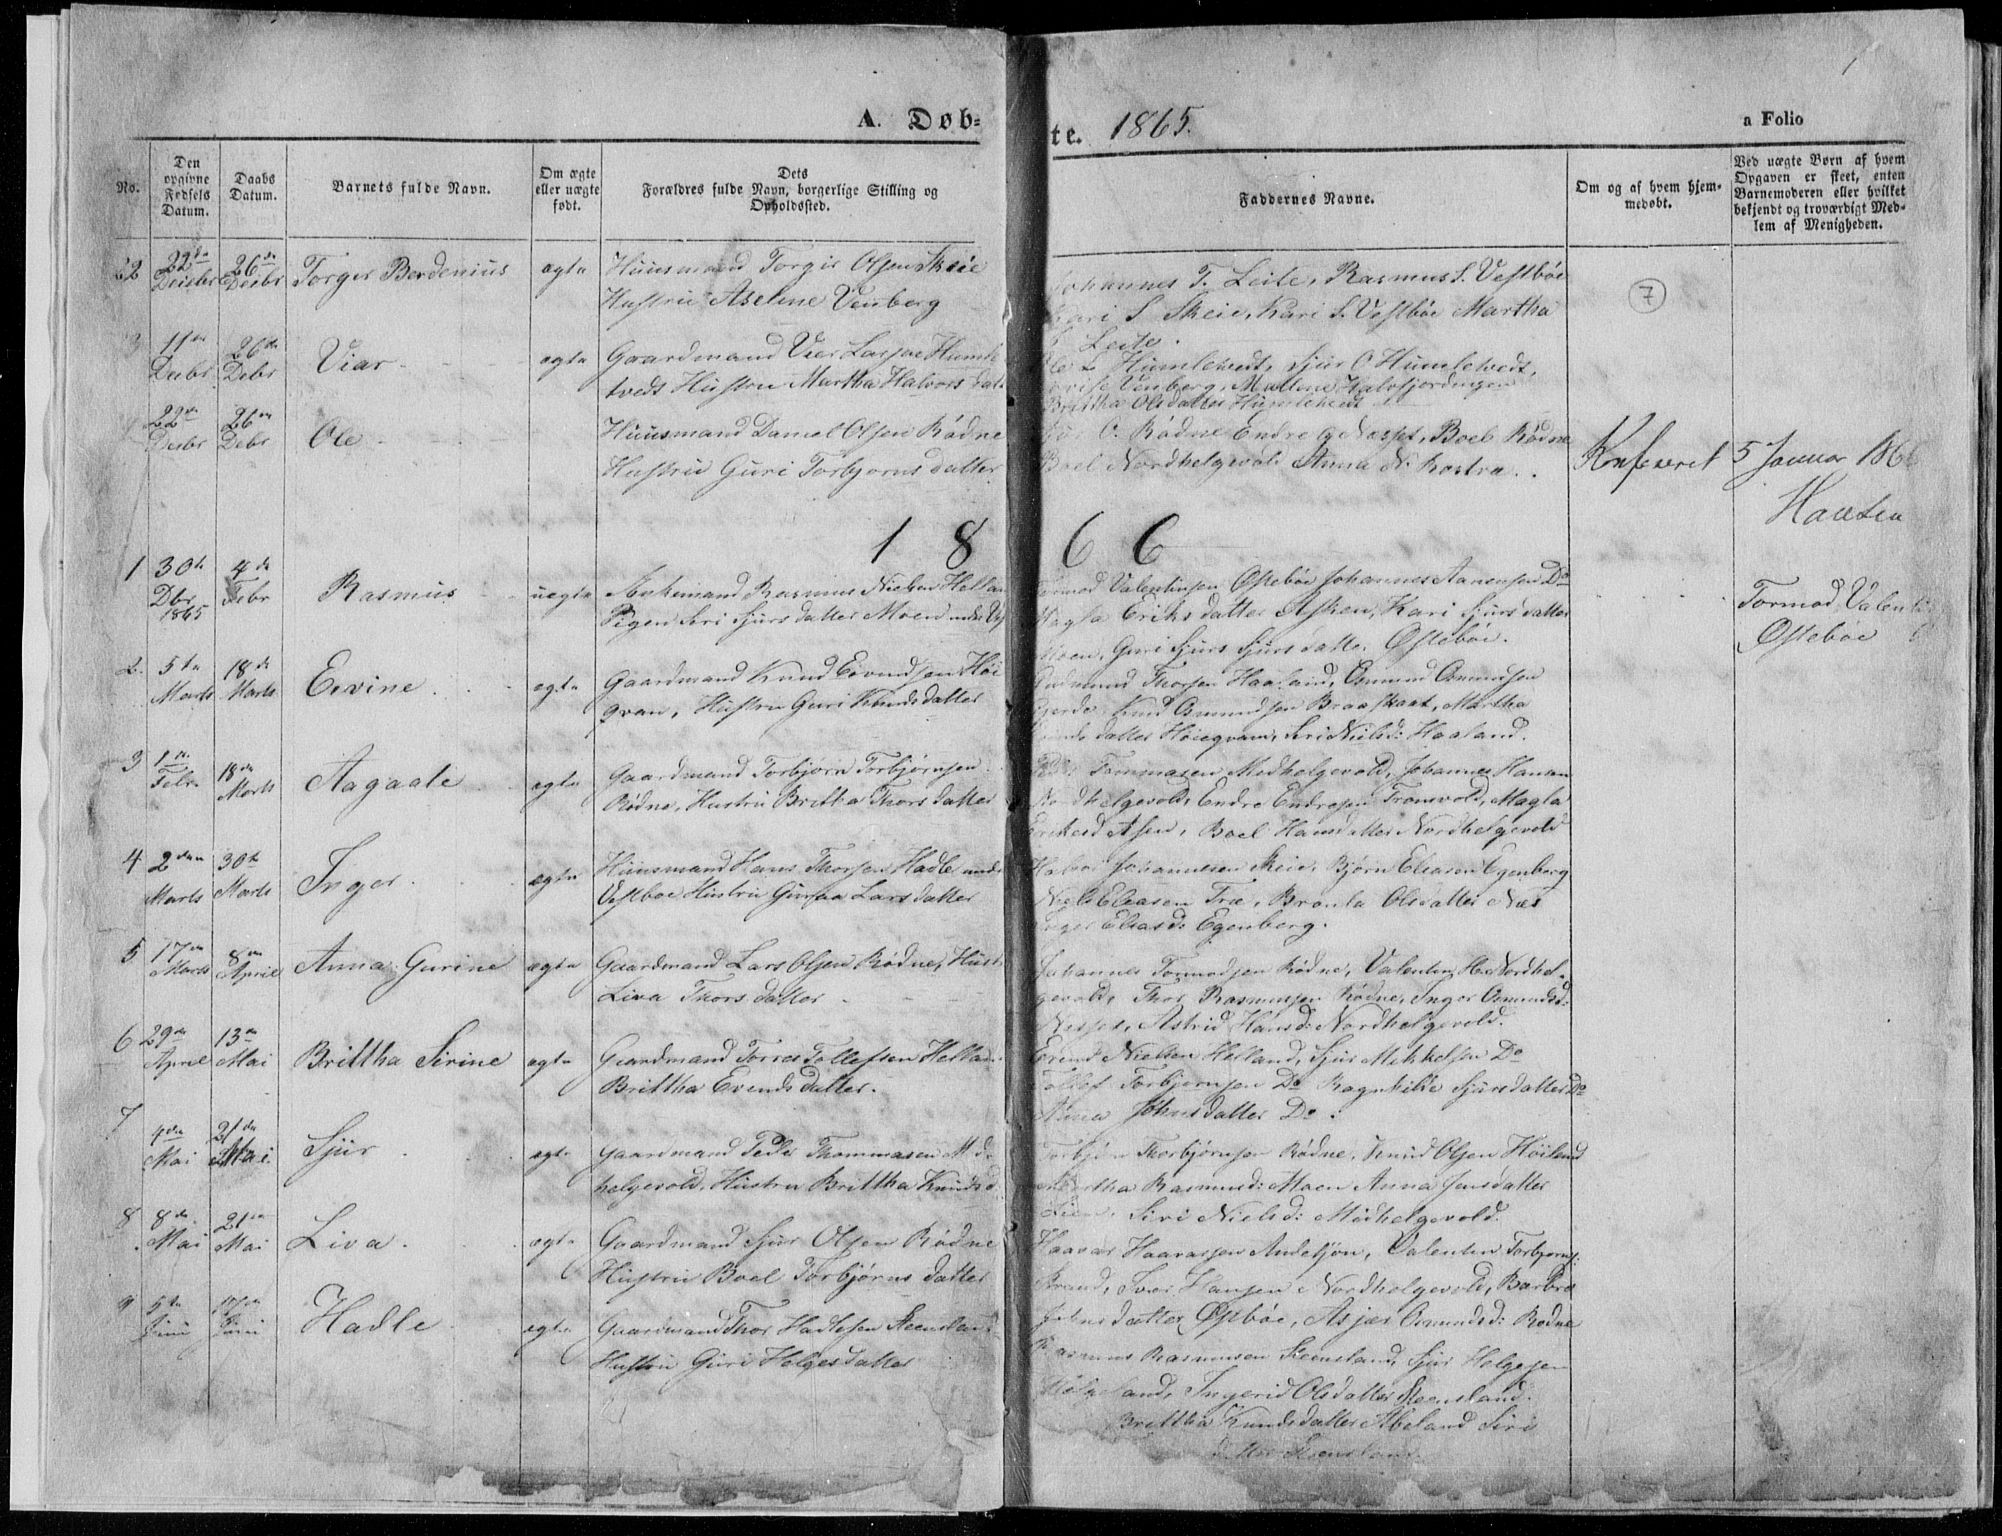 A. Døb=
te. 1865.
a Folio
No.
Den opgivne Fødsels Datum.
Daabs Datum.
Barnets fulde Navn.
Om ægte eller uægte født.
Dets Forældres fulde Navn, borgerlige Stilling og Opholdssted.
Faddernes Navne.
Om og af hvem hjemmedøbt.
Ved uægte Børn af hvem Opgaven er skeet, enten Barnemoderen eller hvilket bekjendt og troværdigt Medlem af Menigheden.
22 22de Desbr 26de Desbr Torger Berdenius ægte Huusmand Torgir Olsen Skeie
Hustru Aselene Venberg
Johannes T. Leite, Rasmus S. Vestbøe
Kari S Skeie, Kari S. Vestbøe Martha
Leite.
7
11te Debr 26de Debr Viar ægte Gaardmand Vier Larsen Humle
tvedt Hustru Martha Halvorsdatt
Ole L Humletvedt, Sjur O Humletvedt,
Venberg, Mallene
Brittha Olsdatter Humletvedt
22de Desbr 26de Debr Ole Huusmand Daniel Olsen Rødne
Hustru Guri Torbjørnsdatter
O. Rødne Endre O Nesse, Boel Rødne
Boel Nordhelgevold Anna N. Rostra.
Konfereret 5 Januar 186
Hansen
1866
1 30te Dbr 1865 4de Febr Rasmus uægte Rasmus Nielsen Hellan
Pigen Siri Sjursdatter Moen under
Tormod Valentinsen Østebøe Johannes Aanensen Do
Magla Eriksdatter Asken, Kari Sjursdatter
Moen, Guri Sjurs Sjursdatte. Østebøe.
Tormod Valenti
Østebøe
2 5te Marts 18de Marts Eevine ægte Gaardmand Knud Eivindsen Høi
qvam, Hustru Guri Knudsdatter
Gudmund Thorsen Haaland, Osmund Osmundsen
Gjerde Knud Osmundsen Braaskaat, Martha
datter Høieqvam, Siri Nielsd: Haaland.
3 1te Febr 18de Marts Aagaate ægte Gaardmand Torbjørn Torbjørnsen
Rødne, Hustru Brittha Thorsdatter
Tommasen Medhelgevold, Johannes Hansen
Nordhelgevold, Endre Endresen Tromsvold, Magla
Eriksd Asen, Boel Hansdatter Nordhelgevold
4 2den Marts 30te Marts Inger ægte Huusmand Hans Thorsen Hadle unde
Vestboe Hustru Larsdatter
Johannesen Skeie, Bjørn Eleasen Egenberg
Niels Eleasen Træ, Bronla Olsdatter Næs
Inger Eleasd: Egenberg.
5 17de Marts 8de April Anna Gurine ægte Gaardmand Lars Olsen Rødne, Hustr
Liva Thorsdatter
Johannes Tormodsen Rødne, Valentin H. Nordhel-
gevold, Thor Rasmussen Rødne, Inger Osmundsd:
Nesse, Astrid Hansd: Nordhelgevold.
6 29de April 13de Mai Brittha Sirine ægte Gaardmand Torres Tollefsen Helland
Brittha Evendsdatter.
Evend Nielsen Helland, Sjur Mikkelsen Do
Tollef Torbjørnsen Do Ragnhilde Sjursdatter Do
Anna Johnsdatter Do.
7 4de Mai 21de Mai Sjur ægte Gaardmand Peder Thommasen Med
helgevold, Hustru Brittha Knudsd
Torbjørn Thorbjørnsen Rødne, Knud Olsen Høiland
Martha Rasmusd: Moen Anna Jensdatter
Lien, Siri Nielsd: Medhelgevold.
8 8de Mai 21de Mai Liva ægte Gaardmand Sjur Olsen Rødne
Hustru Boel Torbjørnsdatter
Haavar Haavarsen Andelsjøn, Valentin Torbjørns:
Strand, Iver Hansen Nordhelgevold, Barbro
Johnsdatter Østbøe, Asjær Osmundsd: Rødne
9 5te Juni 17de Juni Hadle ægte Gaardmand Thor Hadlesen Steensland
Hustru Guri Helgesdatter
Rasmus Rasmussen Steensland, Sjur Helgesen
Helgeland, Ingerid Olsdatter Steensland.
Brittha Knudsdatter Abeland Siri
datter Steensland.